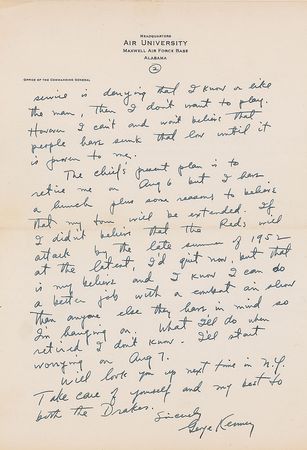 HEADQUARTERS
AIR UNIVERSITY
MAXWELL AIR FORCE BASE
ALABAMA
2
OFFICE OF THE COMMANDING GENERAL
service is denying that I know or like
the man, then I don't want to play.
However I can't and won't believe that
people have sunk that low until it
is proven to me.
The chief's present plan is to
retire me on Aug 6 but I have
a hunch plus some reasons to believe
that my tour will be extended. If
I didn't believe that the Reds will
attack by the late summer of 1952
at the latest, I'd quit now, but that
is my belief and I know I can do
a better job with a combat air show
than anyone else they have in mind so
I'm hanging on. What I'll do when
retired I don't know. I'll start
worrying on Aug 7.
Will look you up next time in N.Y.
Take care of yourself and my best to
both the Drakes.
Sincerely
George Kenney